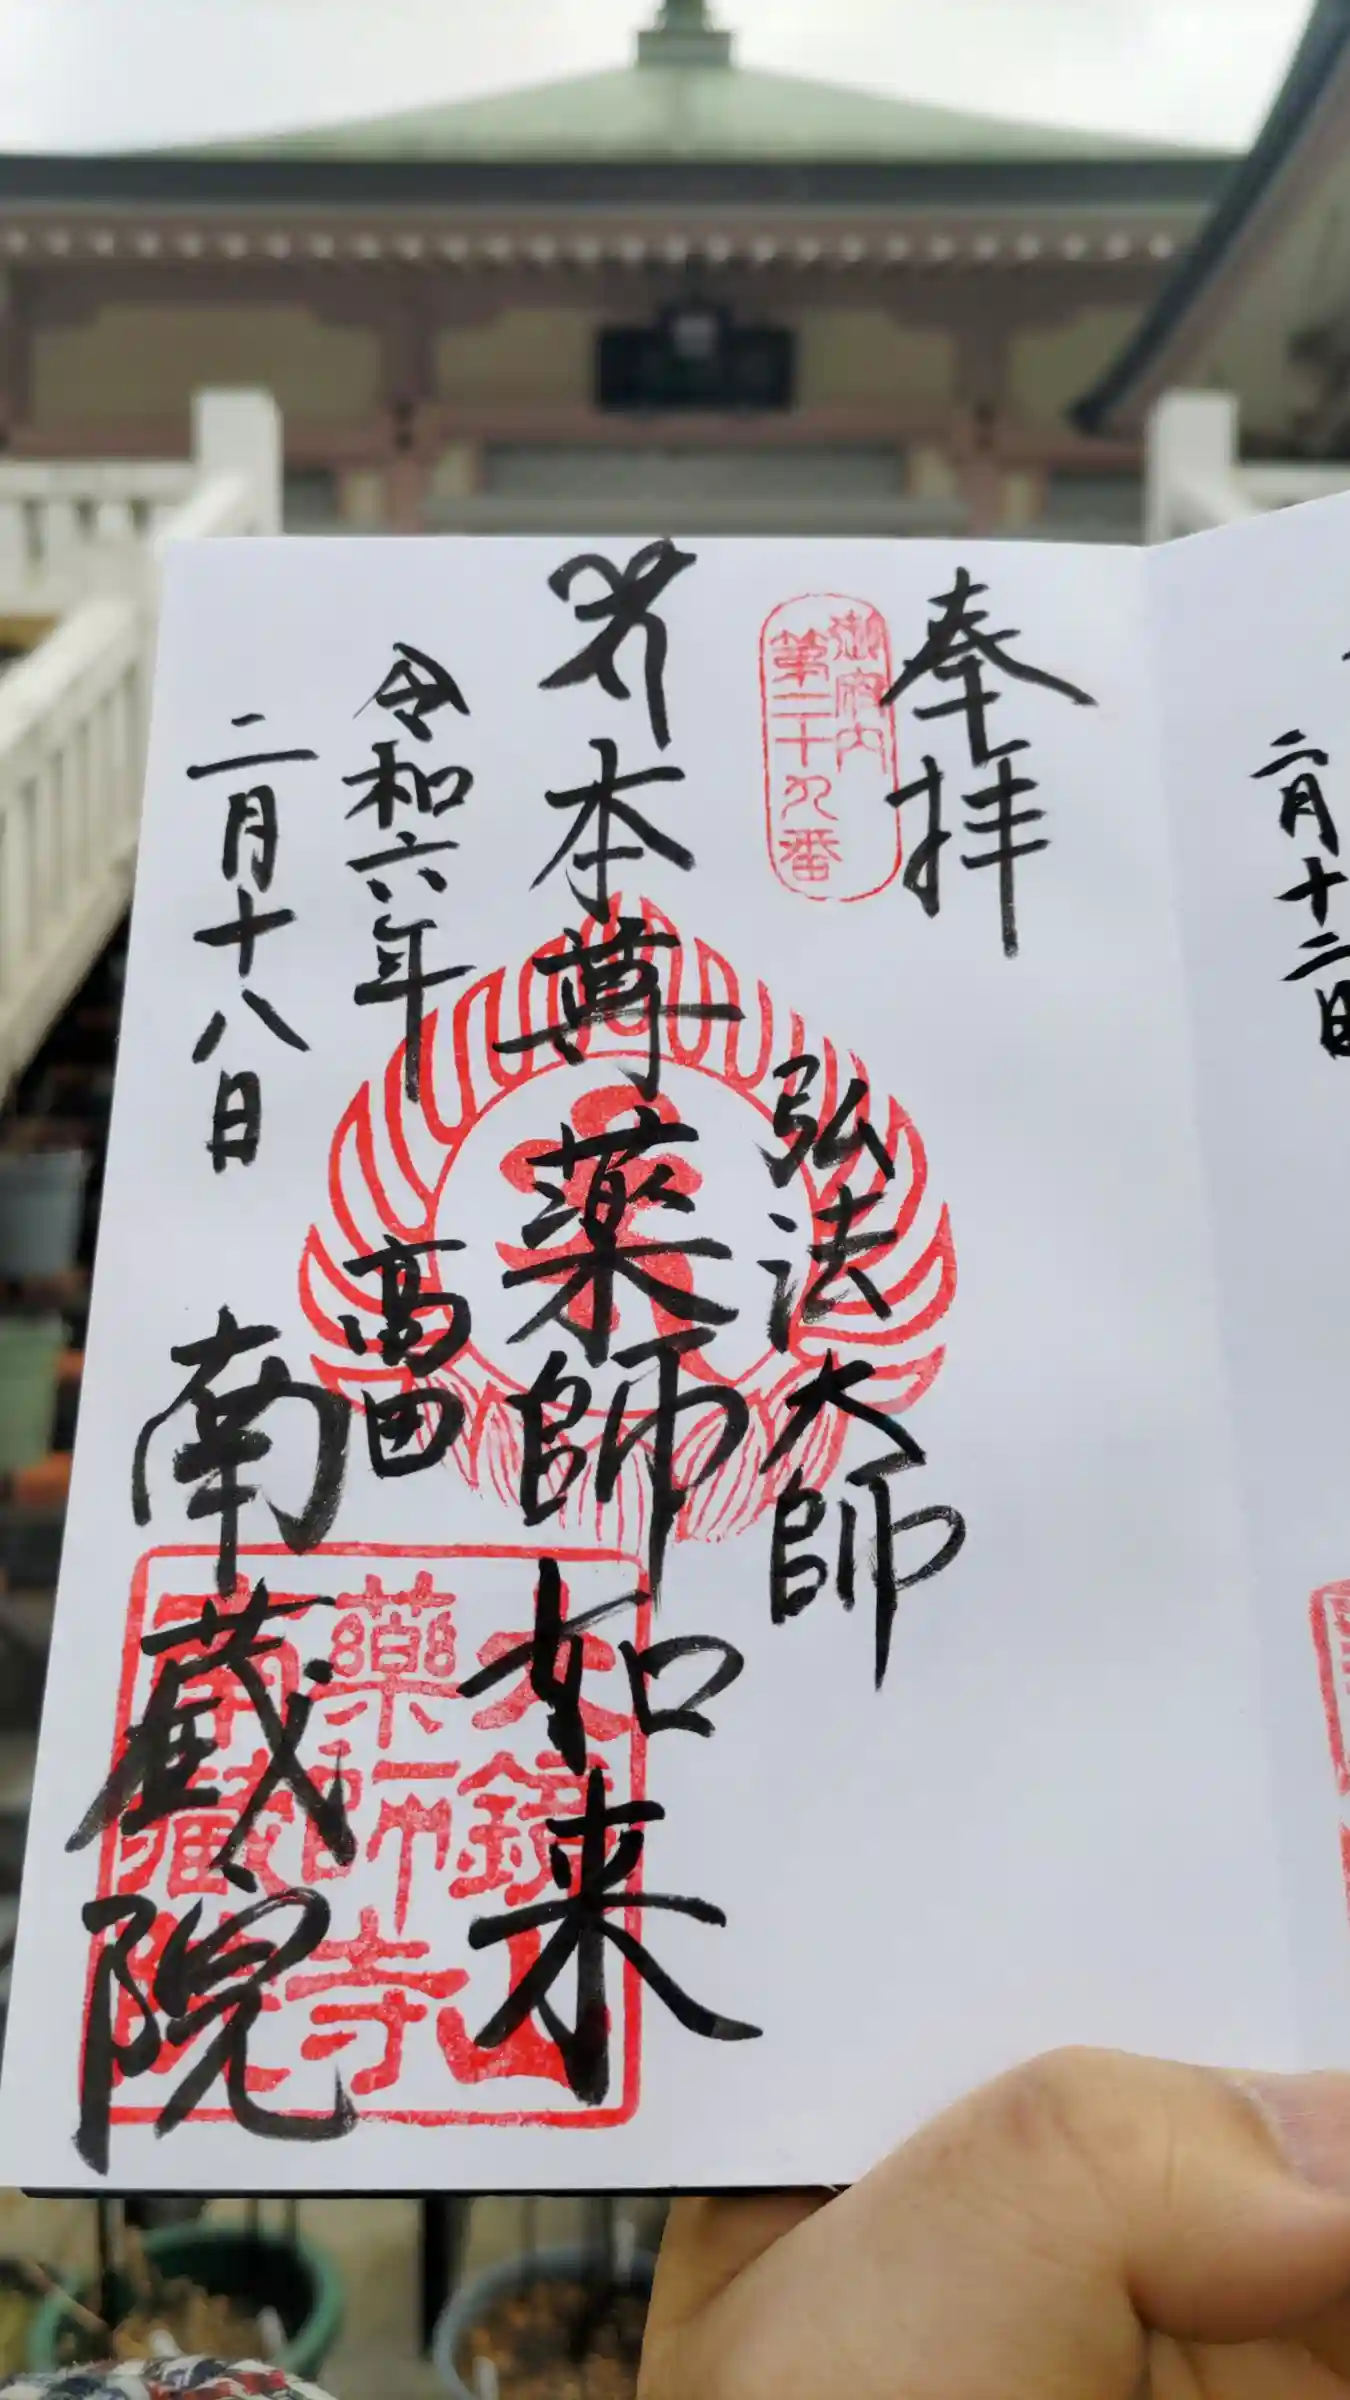 二月十二日
奉拝
御府内
第二十九番
弘法大師
本尊薬師如来
令和六年
高田
二月十八日
南蔵院
大鏡山
薬師寺
南蔵院